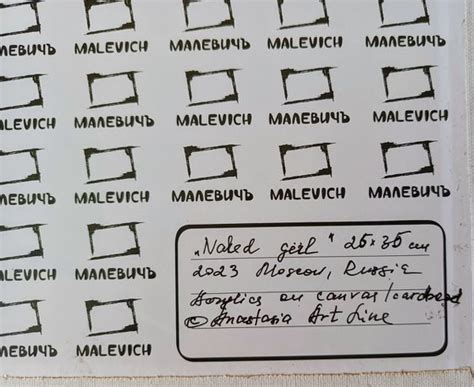 ЛЕВИЧЪ MALEVICH МАЛЕВИЧЪ MALEVICH МАЛЕВИЧЪ
ALEVICH МАЛЕВИЧЪ MALEVICH МАЛЕВИЧЪ MALEVICH
ЛЕВИЧЪ MALEVICH МАЛЕВИЧЪ MALEVICH МАЛЕВИЧЪ
ALEVICH МАЛЕВИЧЪ
ЛЕВИЧЪ MALEVICH
„Naked girl" 25x35 cm
2023 Moscow, Russia
Acrylics on canvas/cardboard
© Anastasia Art Line